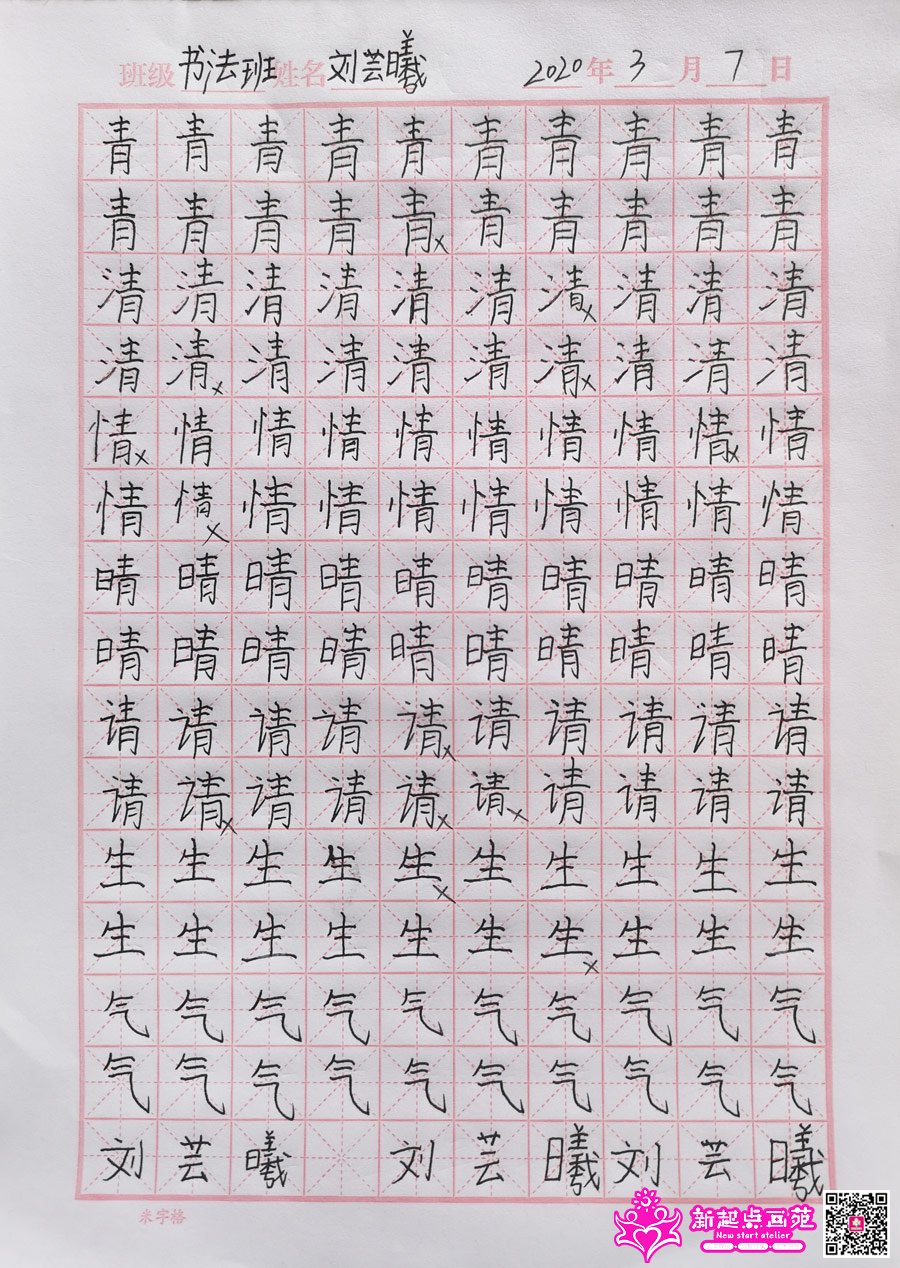 班级 书法班 姓名 刘芸曦 2020 年 3 月 7 日
青 青 青 青 青 青 青 青 青 青
青 青 青 青 青 × 青 青 青 青 青
清 清 清 清 清 清 清 × 清 清 清
清 清 × 清 清 清 清 清 × 清 清 清
情 × 情 情 情 情 情 情 情 情 × 情
情 情 × 情 情 情 情 情 情 情 情
晴 晴 晴 晴 晴 晴 晴 晴 晴 晴
晴 晴 晴 晴 晴 晴 晴 晴 晴 晴
请 请 请 请 请 × 请 请 请 请 请
请 请 × 请 请 请 × 请 × 请 请 请 请
生 生 生 生 生 × 生 生 生 生 生
生 生 生 生 生 生 生 × 生 生 生
气 气 气 气 气 气 气 气 气 气
气 气 气 气 气 气 气 气 气 气
刘 芸 曦 刘 芸 曦 刘 芸 曦
米字格
新起点画苑
New start atelier